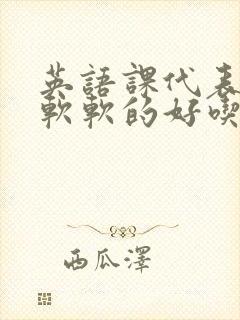 英語課代表
軟軟的好喫
西瓜澤